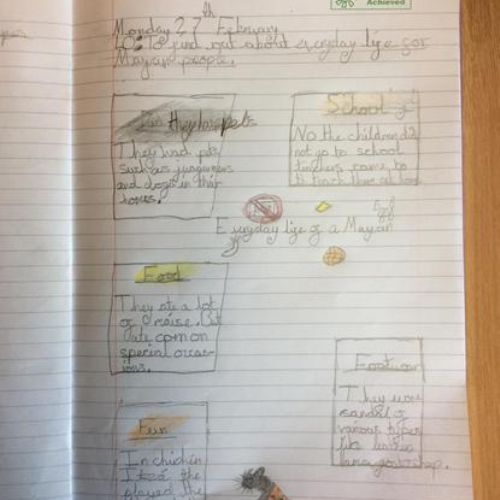 Achieved
th
Monday 27 February
LO: To find out about everyday life for
Mayan people.
Fun They has pets
They had pets
such as
and dogs in their
homes.
School
No the children did
not go to school
teachers came to
to teach them at home
Everyday life of a Mayan
Food
They ate a lot
of maise. But
ate corn on
special occas-
ions.
Footwear
They wore
sandels of
various types
like leather
Fun
In chichén
Itzá the
played the